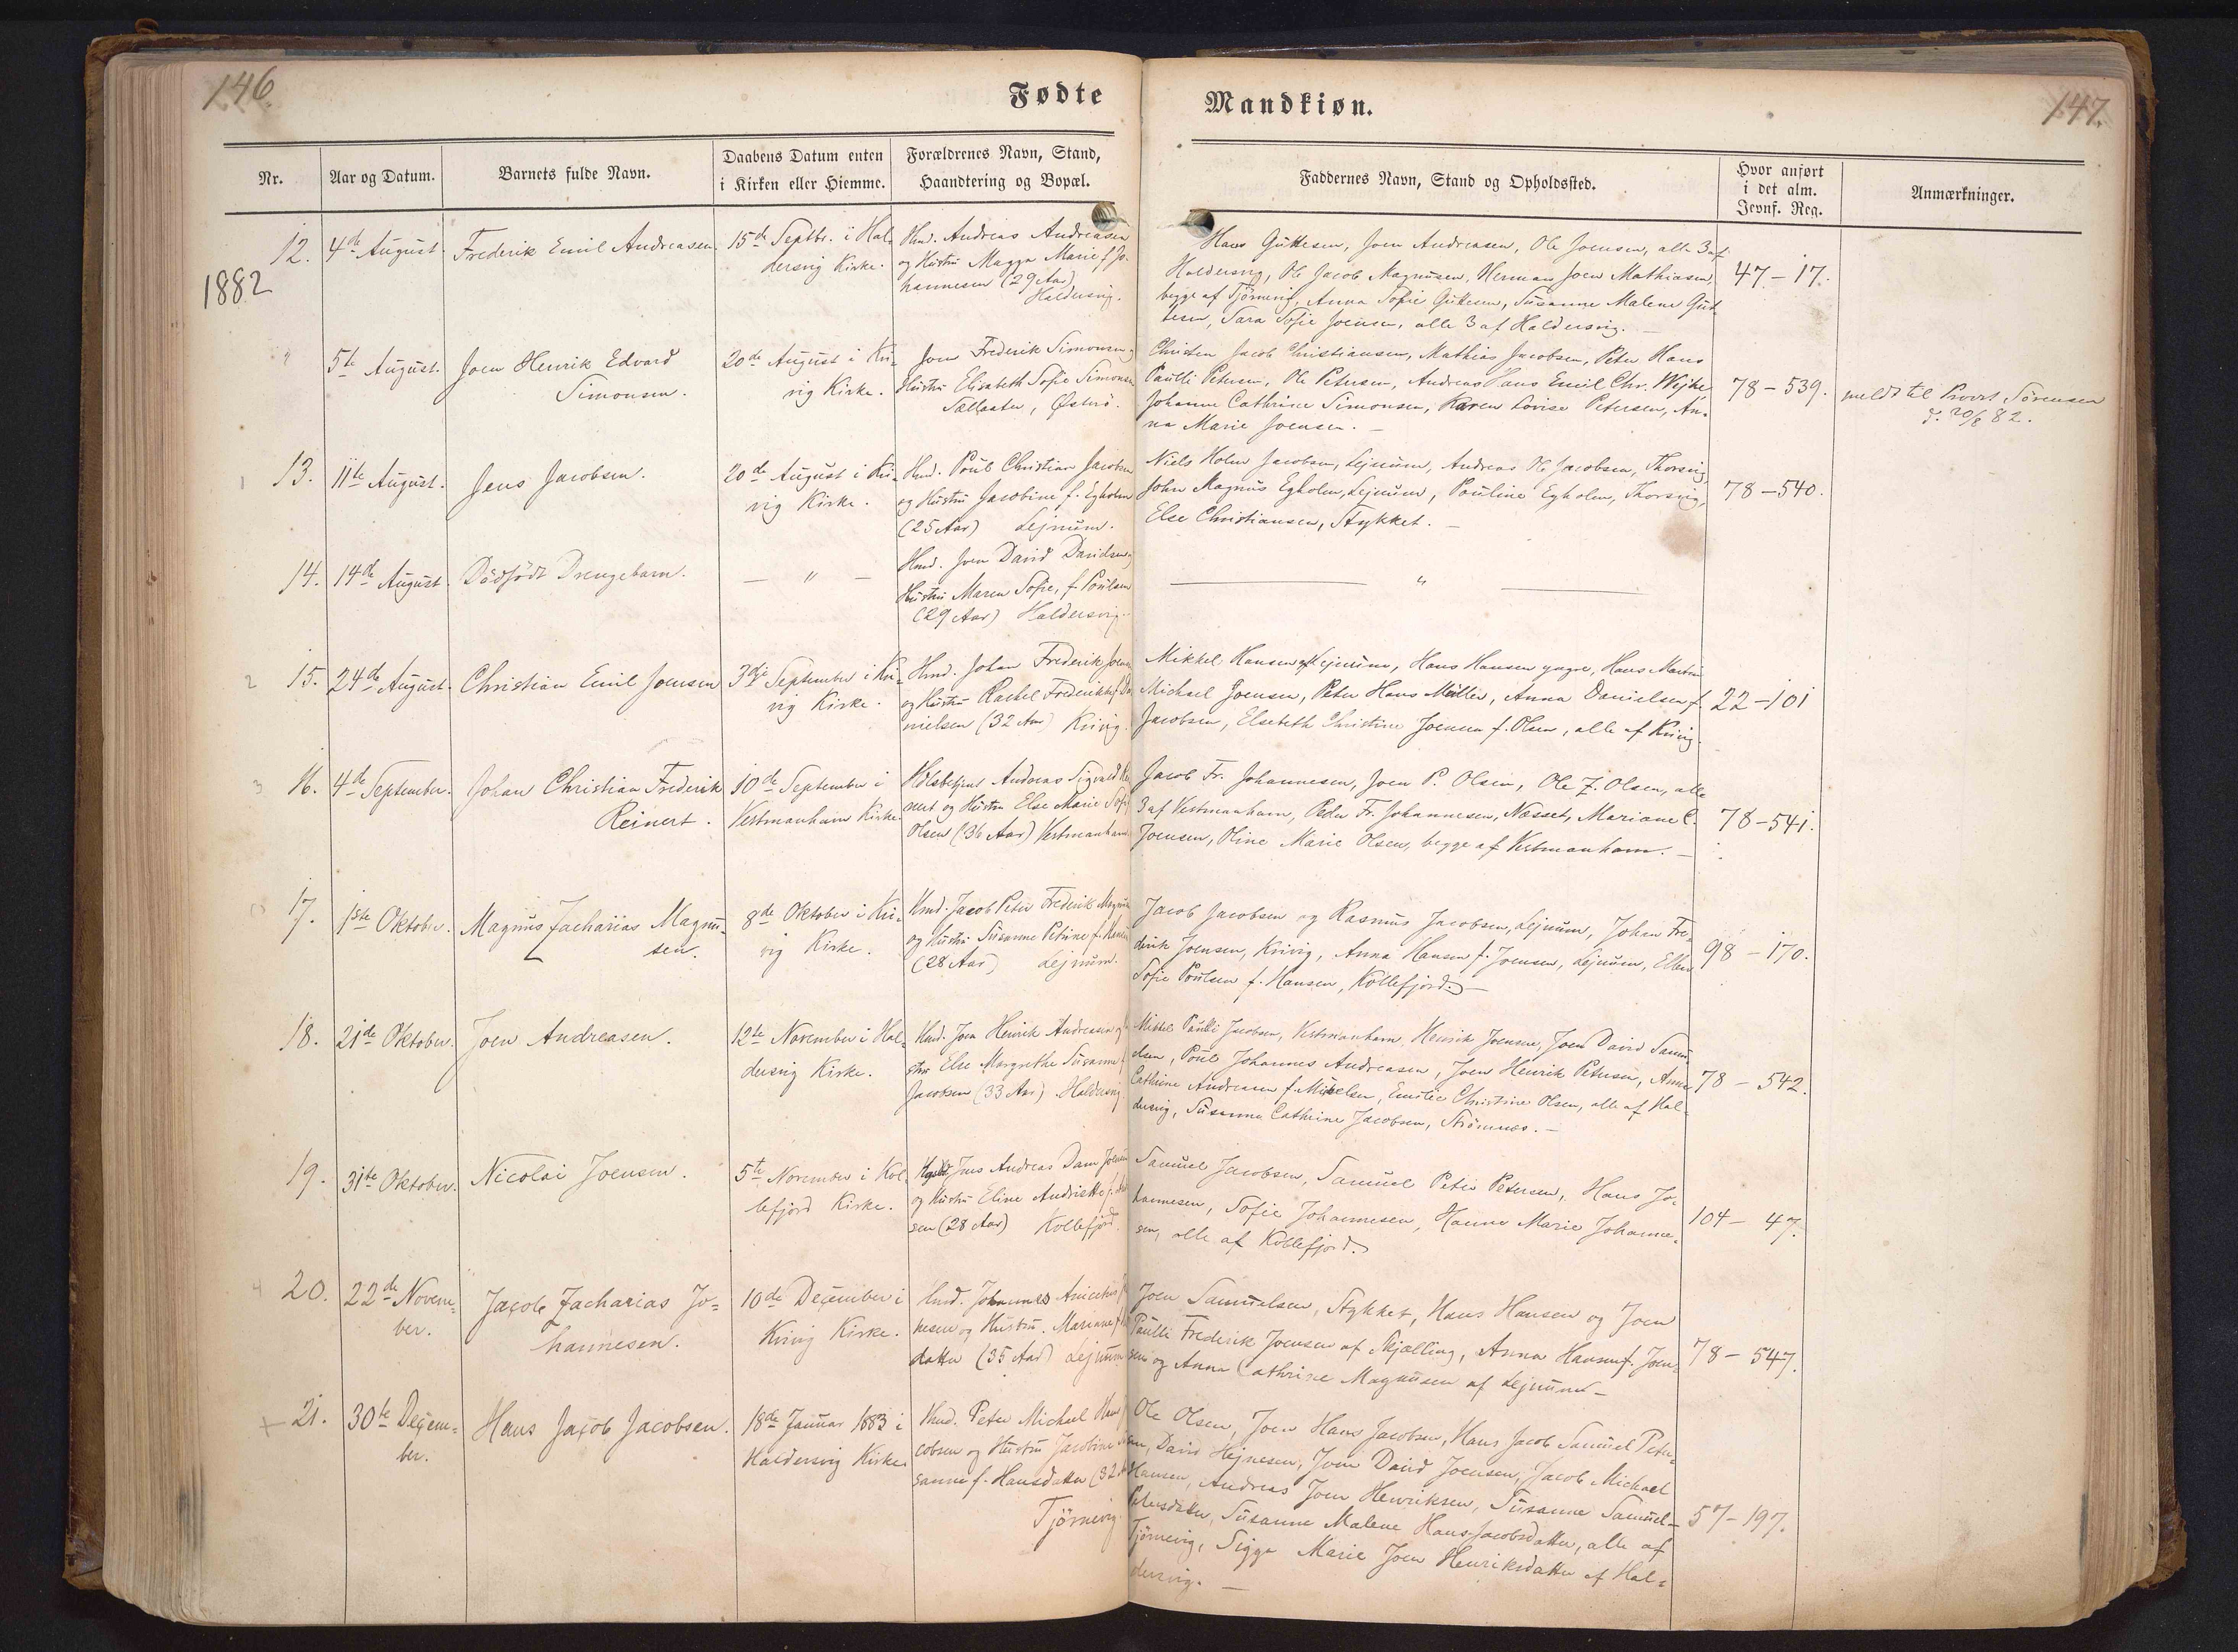 146.
Fødte
Nr.
Aar og Datum.
Barnets fulde Navn.
Daabens Datum enten
i Kirken eller Hiemme.
Forældrenes Navn, Stand,
Haandtering og Bopæl.
1882
12.
4de August.
Frederik Emil Andreasen.
15de Septbr. i Hal-
dersvig Kirke.
Hmd. Andreas Andreasen
og Hustru Magga Marie f. Jo-
hannesen (29 Aar)
Haldersvig.
"
5te August.
Joen Henrik Edvard
Simonsen.
20de August i Kvi-
vig Kirke.
Joen Frederik Simonsen og
Hustru Elisabeth Sofie Simonsen
Sællatter, Østerö.
13.
11te August.
Jens Jacobsen.
20de August i Kvi-
vig Kirke.
Hmd. Poul Christian Jacobsen
og Hustru Jacobine f. Egholm
(25 Aar) Lejnum.
14.
14de August.
Dødfødt Drengebarn.
— " —
Hmd. Joen David Davidsen og
Hustru Maren Sofie, f. Poulsen
(29 Aar) Haldersvig.
15.
24de August.
Christian Emil Joensen
3die September i Kvi-
vig Kirke.
Hmd. Johan Frederik Joensen
og Hustru Rachel Frederikke f. Da
nielsen (32 Aar) Kvivig.
16.
4de September.
Johan Christian Frederik
Reinert.
10de September i
Vestmanhavn Kirke.
Andreas Sigvald Rei
nert og Hustru Else Marie Sofie
Olsen (36 Aar) Vestmanhavn
17.
1ste Oktober.
Magnus Zacharias Magnu-
sen.
8de Oktober i Kvi-
vig Kirke.
Hmd. Jacob Peter Frederik Magnusen
og Hustru Susanne Petrine f. Hansen
(28 Aar) Lejnum.
18.
21de Oktober.
Joen Andreasen.
12te November i Hal-
dersvig Kirke.
Hmd. Joen Henrik Andreasen og Hu
stru Else Margrethe Susanne f.
Jacobsen (33 Aar) Haldersvig
19.
31te Oktober.
Nicolai Joensen.
5te November i Kol-
lefjord Kirke.
Jens Andreas Dam Joensen
og Hustru Eline Andrikke f.
sen (28 Aar) Kollefjord.
20.
22de Novem-
ber.
Jacob Zacharias Jo-
hannesen.
10de December i
Kvivig Kirke.
Hmd. Johannes
nesen og Hustru. Mariane f.
datter (35 Aar) Lejnum
21.
30te Decem-
ber.
Hans Jacob Jacobsen.
18de Januar 1883 i
Haldersvig Kirke.
Hmd. Peter Michael Hans Ja
cobsen og Hustru Jacobine Su
sanne f. Hansdatter (32 Aar
Tjörnevig.
147.
Mandkiøn.
Faddernes Navn, Stand og Opholdssted.
Hvor anført
i det alm.
Jevnf. Reg.
Anmærkninger.
Hans Guttesen, Joen Andreasen, Ole Joensen, alle 3 af
Haldersvig, Ole Jacob Magnusen, Herman Joen Mathiasen,
begge af Tjörnevig, Anna Sofie Guttesen, Susanne Malene Gut
tesen, Sara Sofie Joensen, alle 3 af Haldersvig. —
47. — 17.
Christen Jacob Christiansen, Mathias Jacobsen, Peter Hans
Paulli Petersen, Ole Petersen, Andreas Hans Emil Chr. Wejhe
Johanne Cathrine Simonsen, Karen Lovise Petersen, An-
na Marie Joensen. —
78 — 539.
meldt til Provst Sörensen
d. 20/8 82.
Niels Holm Jacobsen, Lejnum, Andreas Ole Jacobsen, Thorsvig
John Magnus Egholm, Lejnum, Pauline Egholm, Thorsvig,
Else Christiansen, Stykket. —
78 — 540.
— " —
Mikkel Hansen af Lejnum, Hans Hansen yngre, Hans Martin
Michael Joensen, Peter Hans Müller, Anna Danielsen f.
Jacobsen, Elsebeth Christine Joensen f. Olsen, alle af Kvivig.
22 — 101
Jacob Fr. Johannesen, Joen P. Olsen, Ole Z. Olsen, alle
3 af Vestmanhavn, Peder Fr. Johannesen, Nesset, Mariane C.
Joensen, Oline Marie Olsen, begge af Vestmanhavn. —
78 — 541.
Jacob Jacobsen og Rasmus Jacobsen, Lejnum, Johan Fre-
derik Joensen, Kvivig, Anna Hansen f. Joensen, Lejnum, Ellen
Sofie Poulsen f. Hansen, Kollefjord. —
98 — 170.
Mikkel Paulli Jacobsen, Vestmanhavn, Henrik Joensen, Joen David Samu-
elsen, Poul Johannes Andreasen, Joen Henrik Petersen, Anna
Cathrine Andreasen f. Mikkelsen, Emilie Christine Olsen, alle af Hal-
dersvig, Susanna Cathrine Jacobsen, Strömnæs. —
78 — 542.
Samuel Jacobsen, Samuel Peter Petersen, Hans Jo-
hannesen, Sofie Johannesen, Hanne Marie Johanne-
sen, alle af Kollefjord.
104 — 47.
Joen Samuelsen, Stykket, Hans Hansen og Joen
Paulli Frederik Joensen af Skjælling, Anna Hansen f. Joen-
sen og Anna Cathrine Magnusen af Lejnum —
78 — 547.
Ole Olsen, Joen Hans Jacobsen, Hans Jacob Samuel Peter-
sen, David Hejnesen, Joen David Joensen, Jacob Michael
Hansen, Andreas Joen Henriksen, Susanne Samuel-
Petersdatter, Susanne Malene Hans Jacobsdatter, alle af
Tjörnevig, Sigga Marie Joen Henriksdatter af Hal-
dersvig. —
57 — 197.